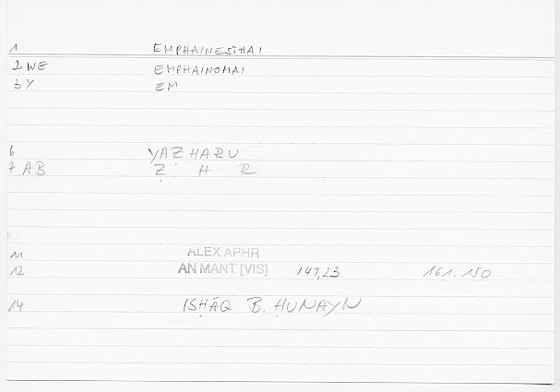 1 EMPHAINESTHAI
2 WE EMPHAINOMAI
3 Y EM
6 YAẒHARU
7 AB Ẓ H R
11 ALEX APHR
12 AN MANT [VIS] 147,23 161.150
14 ISḤĀQ B. ḤUNAYN